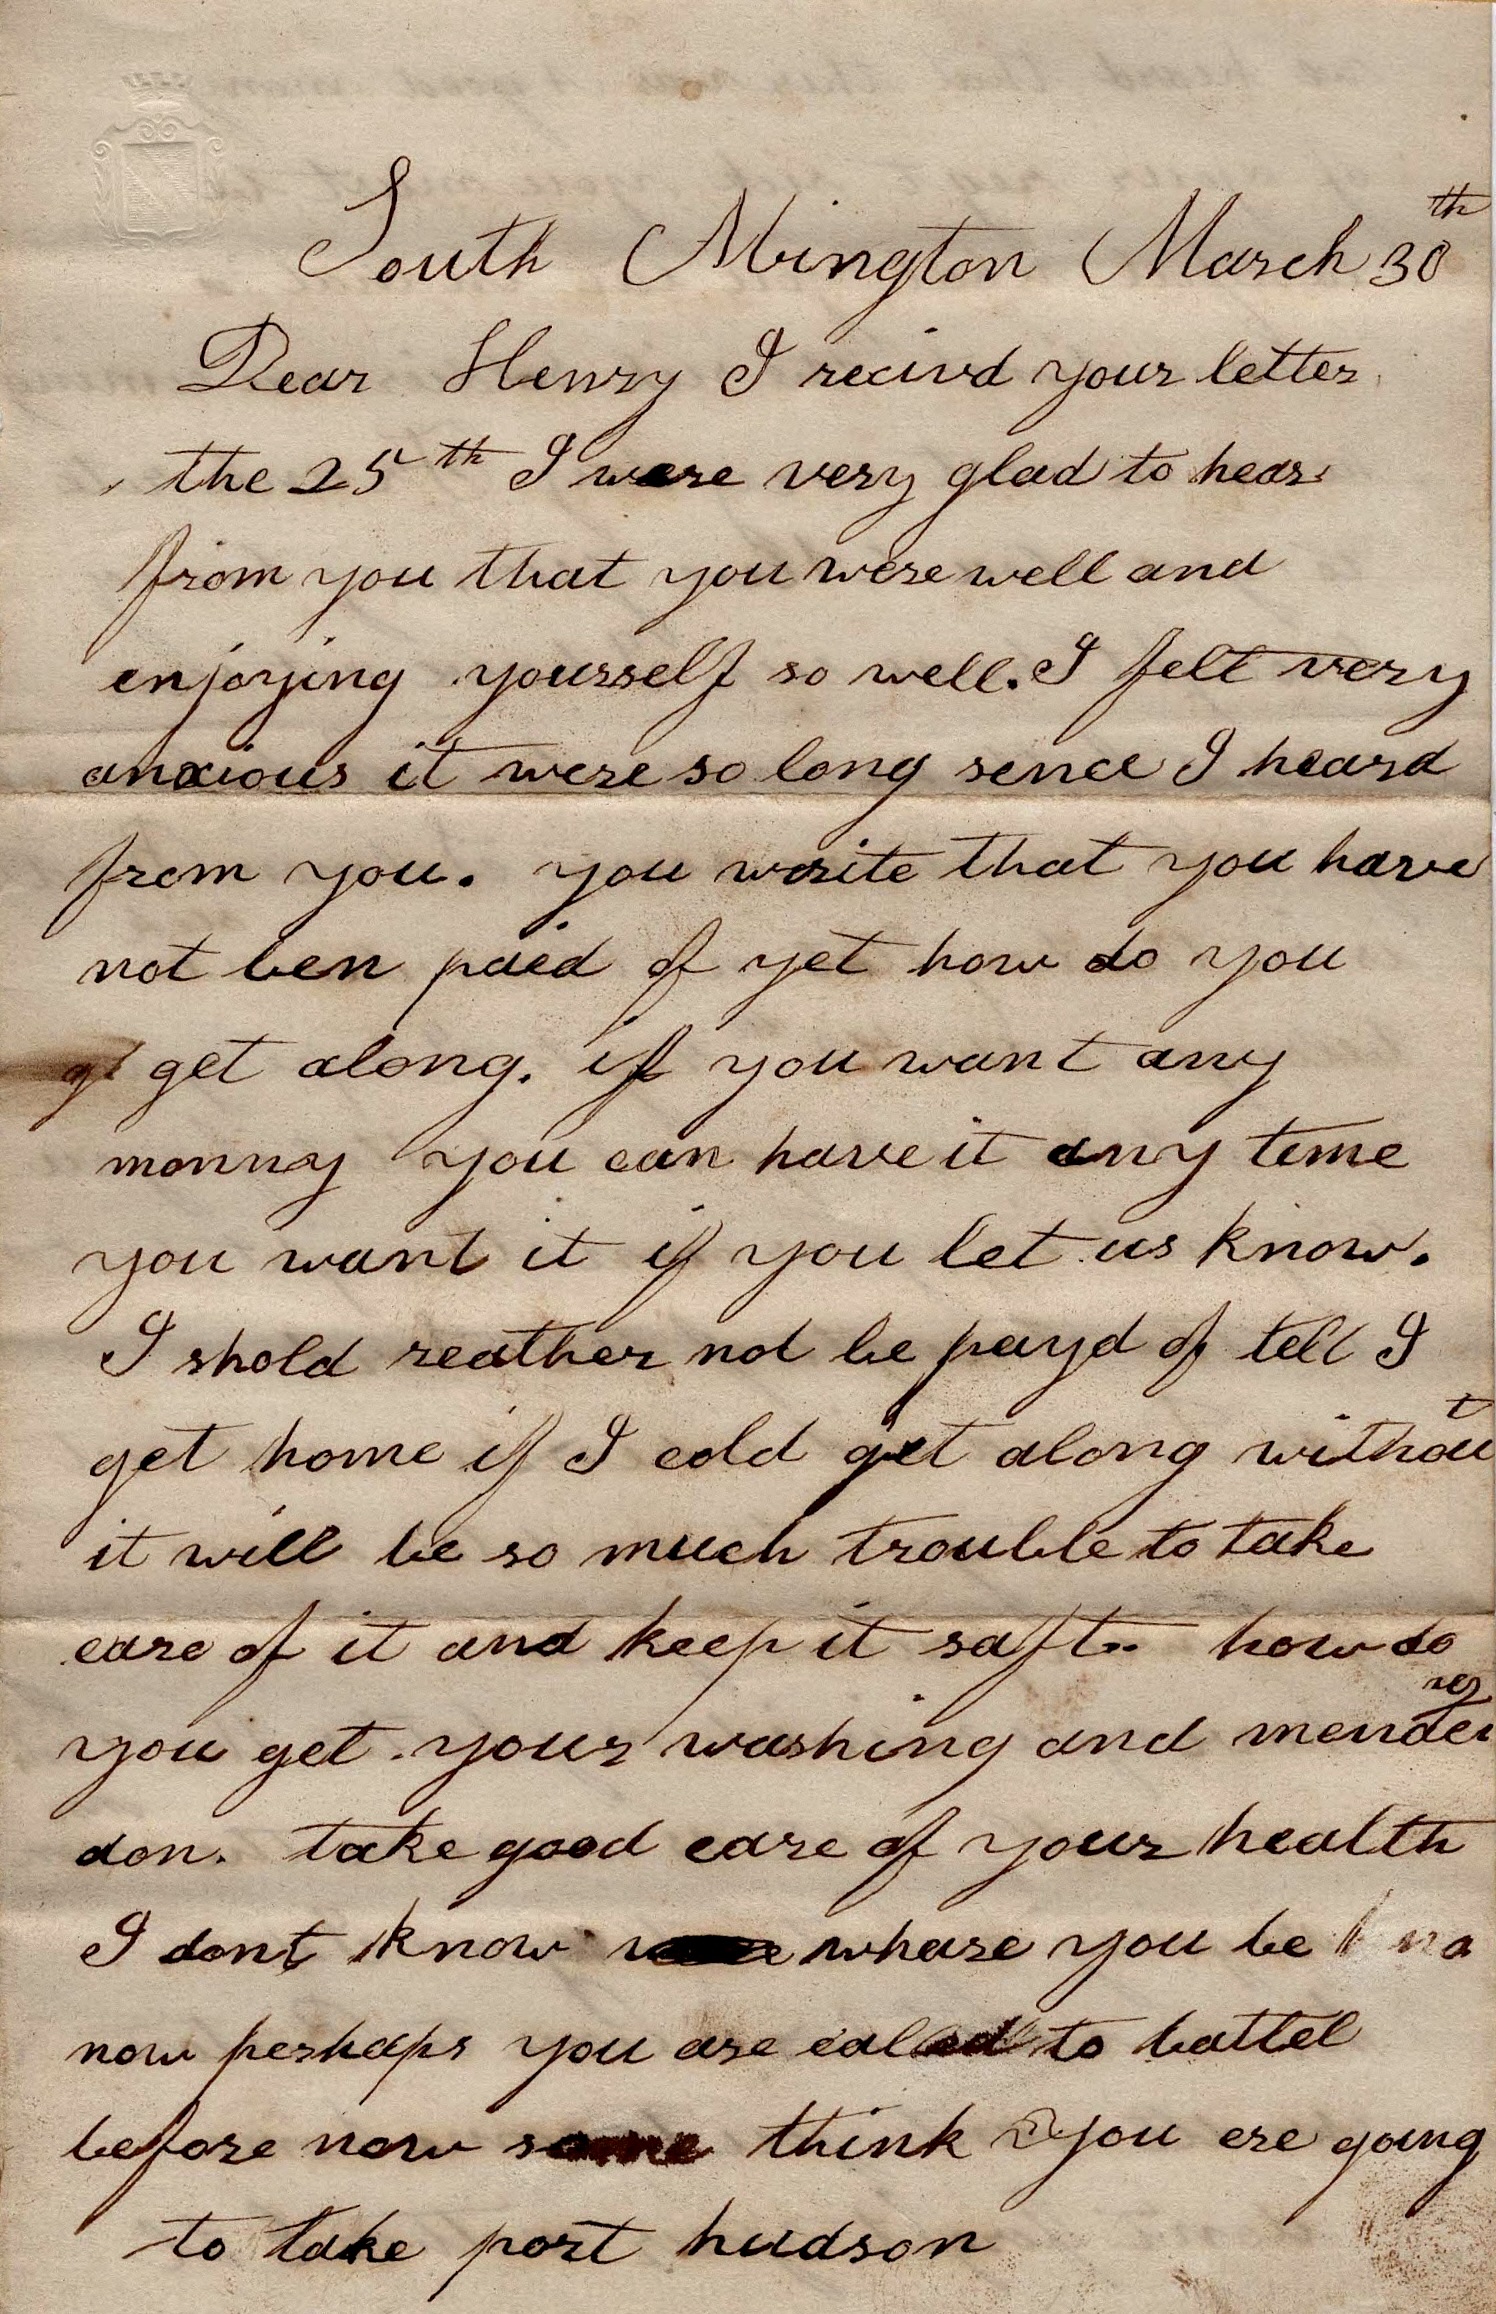 South Abington March 30th
Dear Henry I recivd your letter
the 25th I were very glad to hear
from you that you were well and
enjoying yoursself so well. I felt very
anxious it were so long sence I heard
from you. you write that you have
not ben paid of yet how do you
get along. if you want any
monny you can have it any time
you want it if you let us know.
I shold reather not be payd of tell I
get home if I cold get along without
it will be so much trouble to take
care of it and keep it saft.. how do
you get your washing and mendeing
don. take good care of your health
I dont know whare you be
now perhaps you are caled to battel
before now some think you ere going
to take port hudson